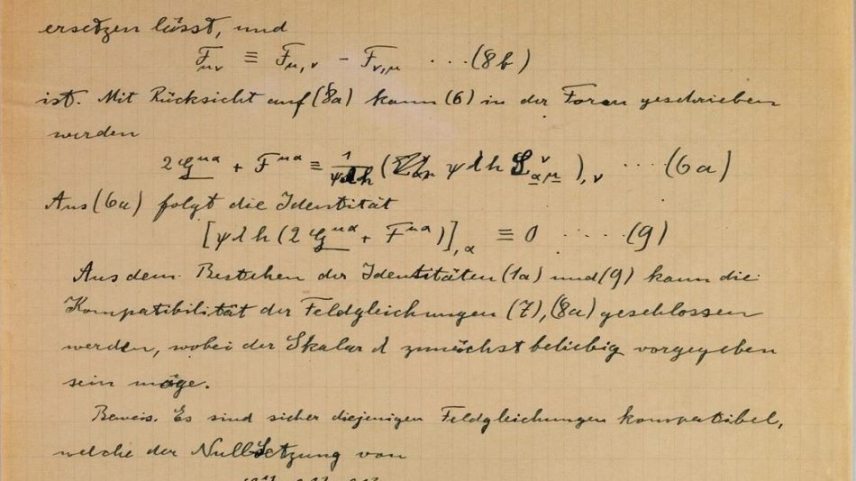 ersetzen lässt, und
F_{μν} ≡ F_{μ,ν} - F_{ν,μ} ... (8b)
ist. Mit Rücksicht auf (8a) kann (6) in der Form geschrieben
werden
2 G^{μα} + F^{μα} ≡ 1/ψλh ( ψ λ h 𝔏^ν_{αμ} ),ν ... (6a)
Aus (6a) folgt die Identität
[ψ λ h (2 G^{μα} + F^{μα})],α ≡ 0 ..... (9)
Aus dem Bestehen der Identitäten (1a) und (9) kann die
Kompatibilität der Feldgleichungen (7), (8a) geschlossen
werden, wobei der Skalar λ zunächst beliebig vorgegeben
sein möge.
Beweis. Es sind sicher diejenigen Feldgleichungen kompatibel,
welche der Nullsetzung von